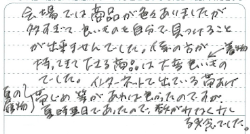 会場では商品が色々ありましたが
多すぎて良いものを自分で見つけること
が出来ませんでした。係の方が
持ってきて下さる商品は大変良いもの
でした。インターネットで出ている帯あげ
帯じめ等があれば良かったのですが、
夏時期目であったので、数がわずかしか
残念でした。
着物
夏の
着物